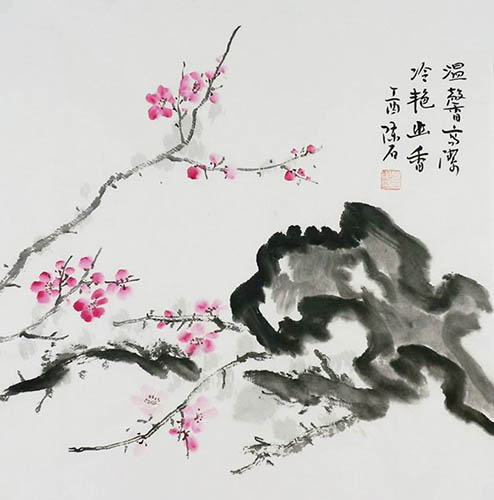 温馨高洁
冷艳幽香
丁酉 陈石